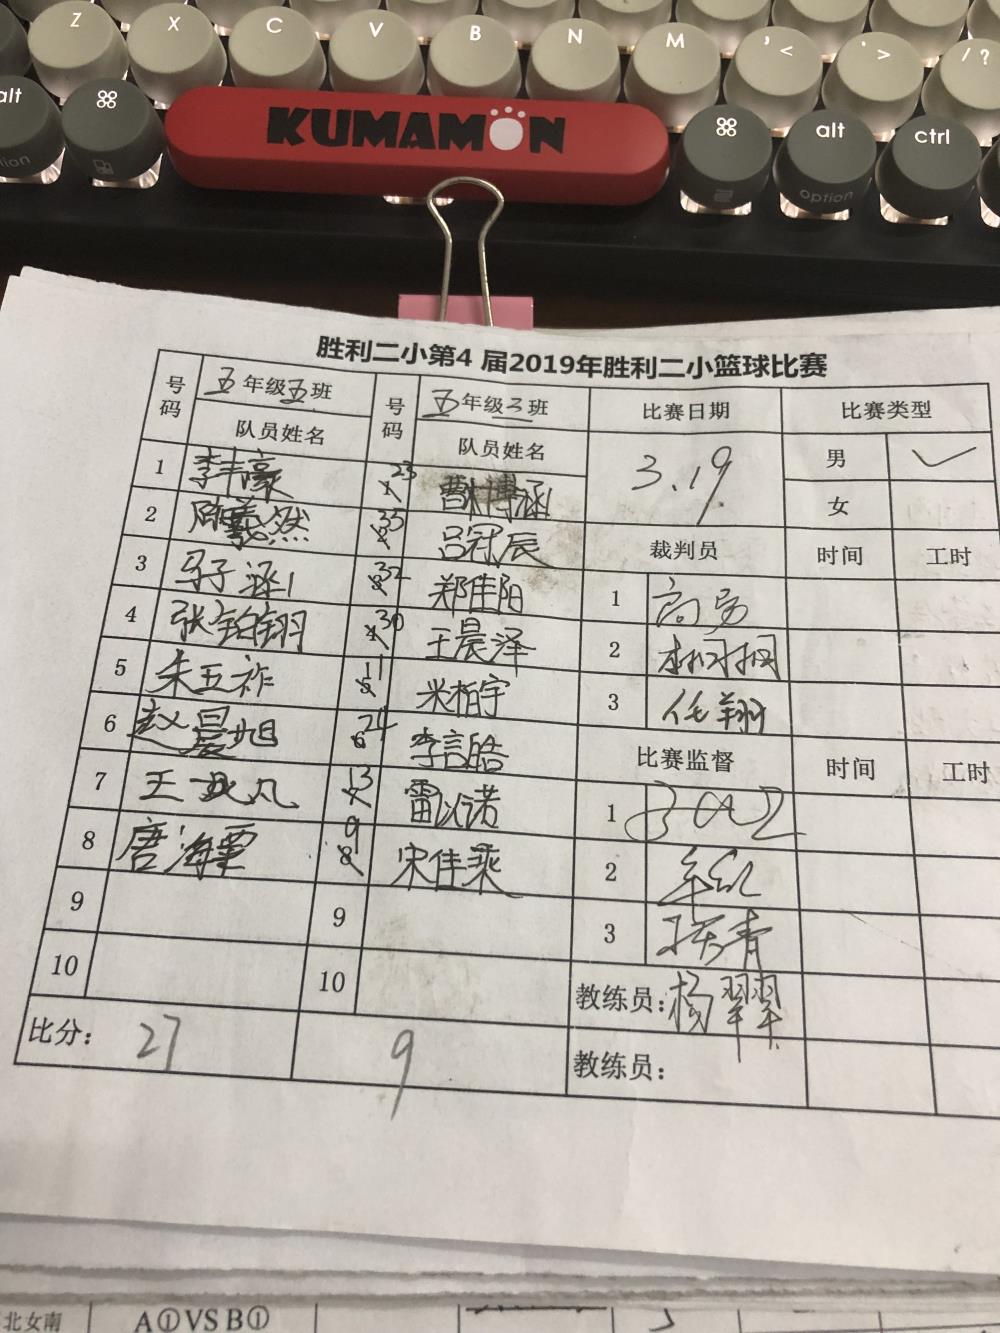 Z X C V B N M , < . > / ?
alt ⌘ KUMAMON ⌘ alt ctrl
option option
胜利二小第4 届2019年胜利二小篮球比赛
号码 五年级五班 号码 五年级三班 比赛日期 比赛类型
队员姓名 队员姓名 3.19 男 ✓
女
1 李丰豪 1 23 曹博涵
2 然 2 35 吕冠辰 裁判员 时间 工时
3 马子涵 3 32 郑佳阳 1
4 张铂翔 4 30 王晨泽 2
5 朱五祚 5 11 米柏宇 3 任翔
6 赵晨旭 6 24 李言皓 比赛监督 时间 工时
7 王凡 7 13 雷以诺 1
8 唐海 8 9 宋佳乘 2
9 9 3
10 10 教练员:杨翠翠
比分: 27 9 教练员:
北女南 A①VS B①